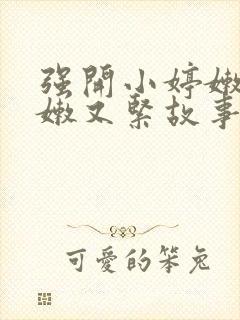 强開小婷嫩
嫩又緊故事
可愛的笨兔